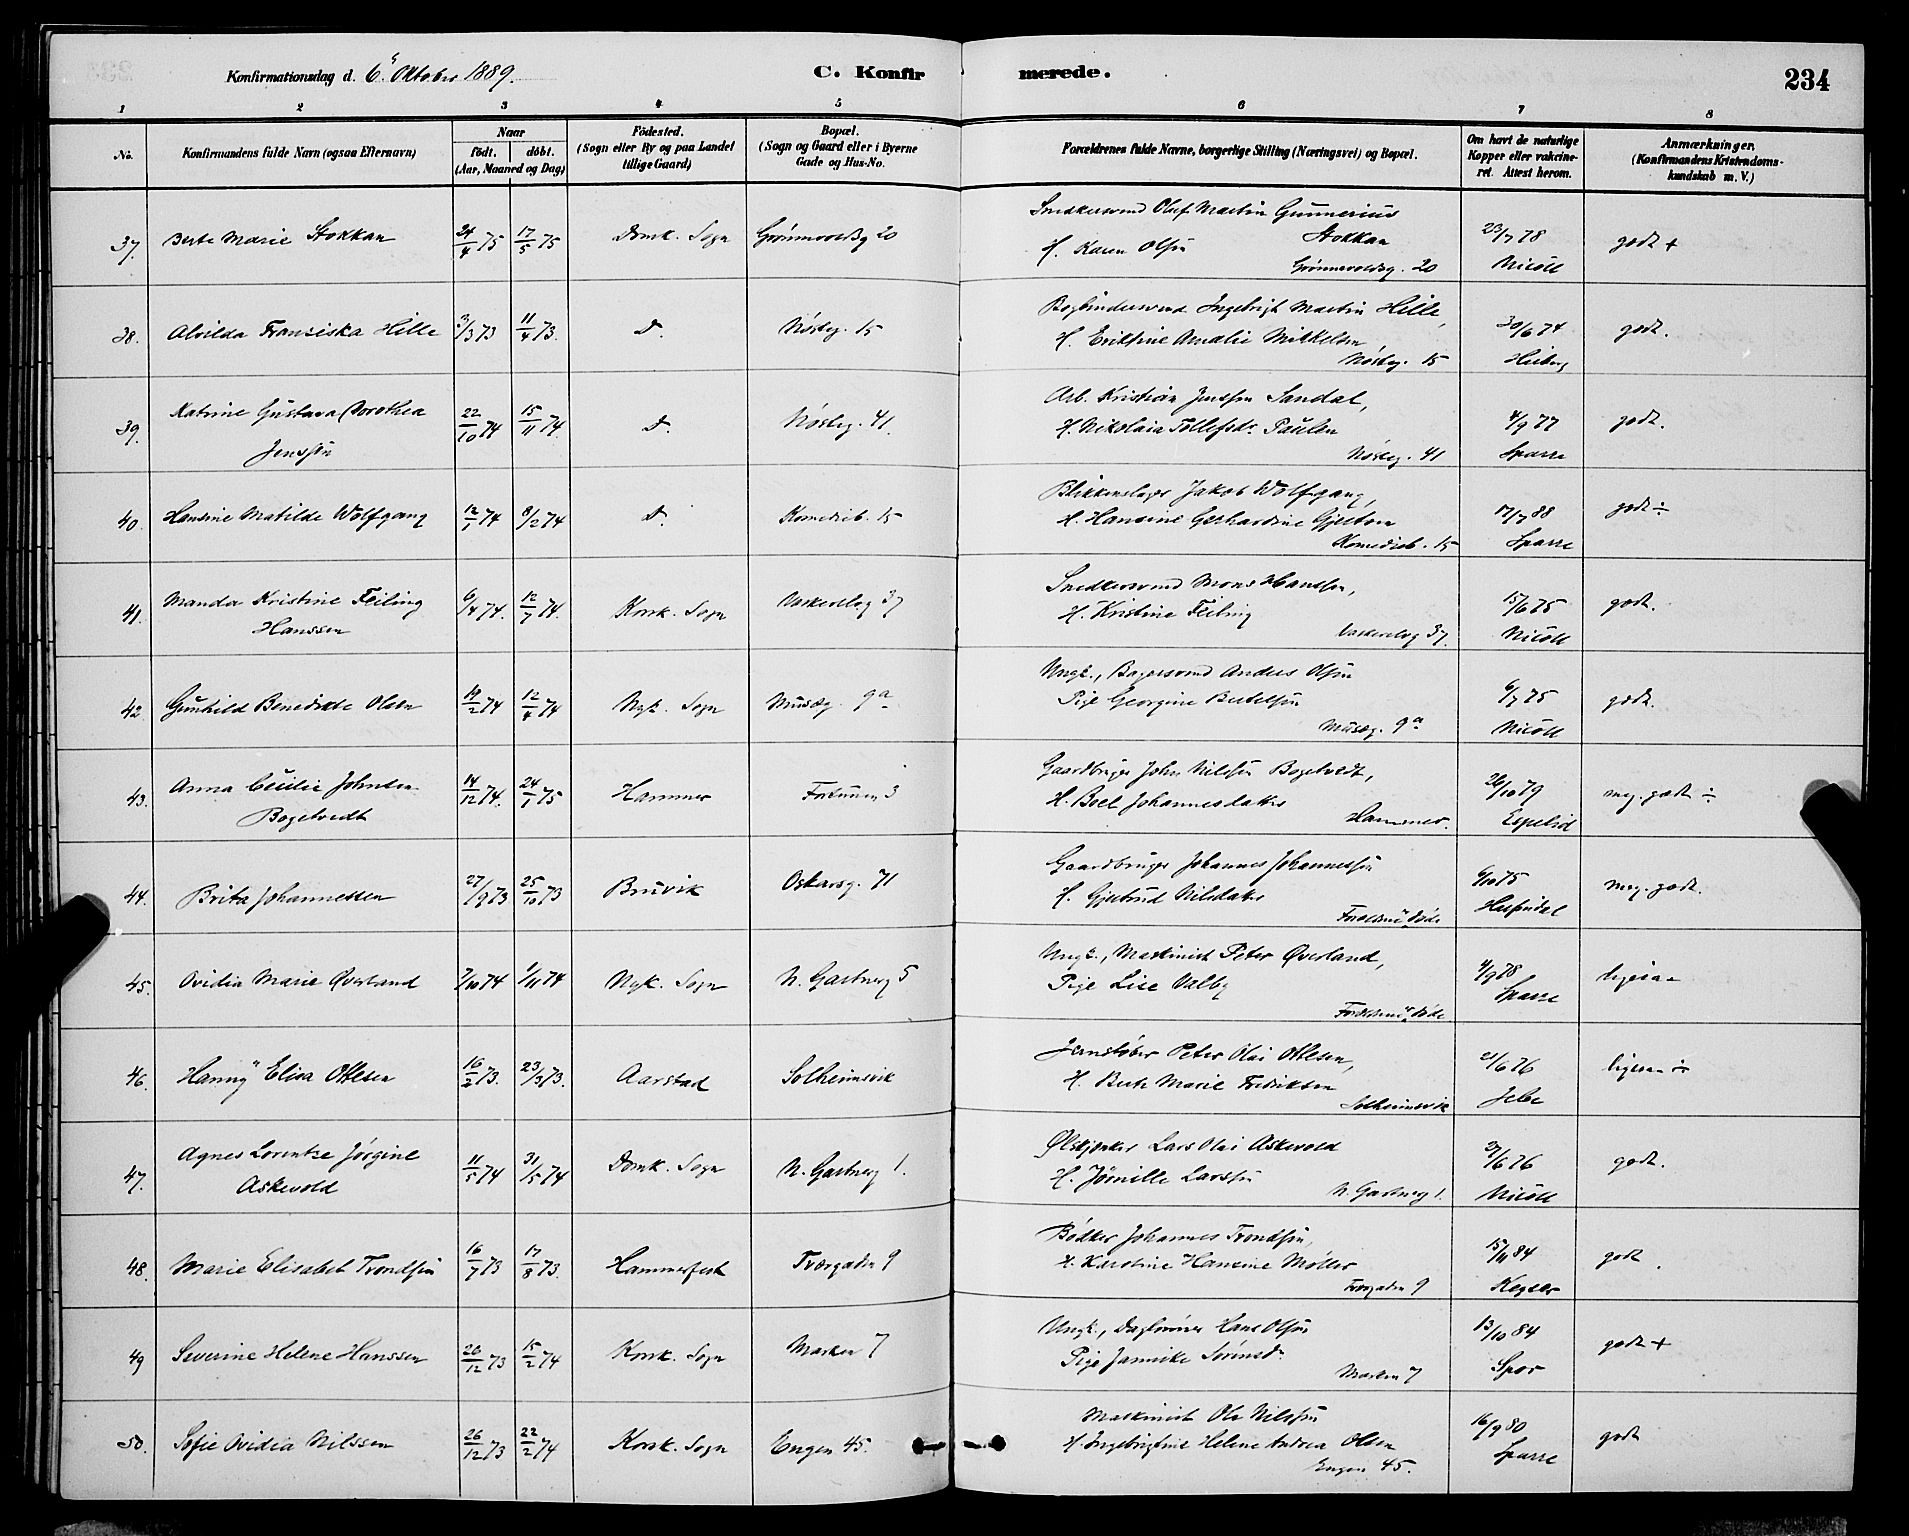 Konfirmationsdag d. 6. Oktober 1889. C. Konfirmerede. 234
1 2 3 4 5 6 7 8
No. Konfirmandens fulde Navn (ogsaa Efternavn) Naar født. døbt. (Aar, Maaned og Dag) Fødested. (Sogn eller By og paa Landet tillige Gaard) Bopæl. (Sogn og Gaard eller i Byerne Gade og Hus-No. Forældrenes fulde Navne, borgerlige Stilling (Næringsvei) og Bopæl. Om havt de naturlige Kopper eller vakcineret. Attest herom. Anmærkninger. (Konfirmandens Kristendomskundskab m. V.)
37. Berte Marie Stokkan 24/4 75 17/5 75 Domk. Sogn Grønnevoldsg 20 Snedkersvend Olaf Martin Gunnerius Stokkan
H. Karen Olsen Grønnevoldsg. 20 23/7 78 Nicoll godt +
38. Alvilda Franciska Hille 3/3 73 11/4 73. D. Nøsteg. 15 Bogbindersvend Ingebrigt Martin Hille,
H. Eriksine Amalie Mikkelsen Nøsteg. 15 30/6 74 Heiberg godt.
39. Katrine Gustava Dorothea
Jenssen 22/10 74 15/11 74. D. Nøsteg. 41. Arb. Kristian Jenssen Sandal,
H. Nikolaia Tollefsdr. Paulen Nøsteg. 41 4/9 77 Sparre godt.
40. Hansine Matilde Wolfgang 12/1 74 8/2 74 D. Komedieb. 15 Blikkenslager Jakob Wolfgang,
H. Hansine Gerhardine Gjertsen Komedieb. 15 17/7 88 Sparre godt ÷
41. Manda Kristine Feiling
Hanssen 6/4 74. 12/7 74. Korsk. Sogn Vaskerelvg 37 Snedkersvend Mons Hanssen,
H. Kristine Feiling Vaskerelvg 37. 15/6 75 Nicoll godt.
42. Gunhild Benedikte Olsen 19/2 74 12/4 74 Nyk. Sogn Museg. 9a Ungk., Bagersvend Anders Olsen
Pige Georgine Bertelsen Museg. 9a 6/7 75 Nicoll godt.
43. Anna Cecilie Johnsen
Bogetvedt 14/12 74. 24/1 75 Hammer Fortunen 3 Gaardbruger John Nilssen Bogetvedt,
H. Boel Johannesdatter Hammer. 26/10 79 Espelid meg. godt ÷
44. Brita Johannessen 27/9 73 25/10 73 Bruvik Oskarsg. 71 Gaardbruger Johannes Johannessen
H. Gjertrud Nilsdatter Forældrene døde 6/10 75 meg. godt.
45. Ovidia Marie Øverland 7/10 74 1/11 74 Nyk. Sogn N. Gartnerg 5 Ungk., Maskinist Peter Øverland,
Pige Lise Valby Forældrene døde 4/9 78 Sparre ligesaa
46. Hanny Elisa Ottesen 16/2 73. 23/3 73. Aarstad Solheimsvik Jernstøber Peter Olai Ottesen,
H. Berte Marie Fredriksen Solheimsvik 21/6 76 Jebe ligesaa ÷
47. Agnes Lorentze Jørgine
Askevold 11/5 74 31/5 74 Domk. Sogn N. Gartnerg 1. Ølskjænker Lars Olai Askevold
H. Jørnille Larssen N. Gartnerg 1. 21/6 76 Nicoll godt.
48. Marie Elisabet Trondsen 16/7 73 17/8 73. Hammerfest Tværgaden 9 Bødker Johannes Trondsen,
H. Karoline Hansine Møller Tværgaden 9 15/11 84 Keyser godt.
49 Severine Helene Hanssen 26/12 73 15/2 74 Korsk. Sogn Marken 7 Ungk., Daglønner Hans Olsen
Pige Jannike Sørensdr. Marken 7 13/10 84 Spor godt +
50. Sofie Ovidia Nilssen 26/12 73 22/2 74 Korsk. Sogn Engen 45. Maskinist Ole Nilssen
H. Ingebrigtine Helene Andrea Olsen Engen 45. 16/9 80 Sparre godt